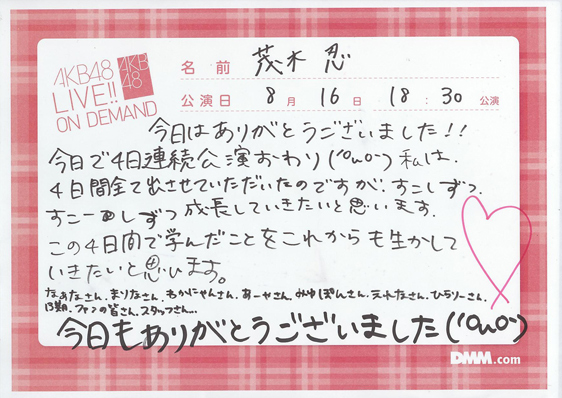 AKB48
LIVE!!
ON DEMAND
AKB
48
名前 茂木 忍
公演日 8月 16日 18:30 公演
今日はありがとうございました!!
今日で4日連続公演おわり('^ω^`) 私は、
4日間全て出させていただいたのですが、すこしずつ、
すこーしずつ成長していきたいと思います。
この4日間で学んだことをこれからも生かして
いきたいと思います。
なぁなさん、まりなさん、もかにゃんさん、あーやさん、みゆぽんさん、えれなさん、ひらりーさん、
13期、ファンの皆さん、スタッフさん…
今日もありがとうございました('^ω^`)
DMM.com